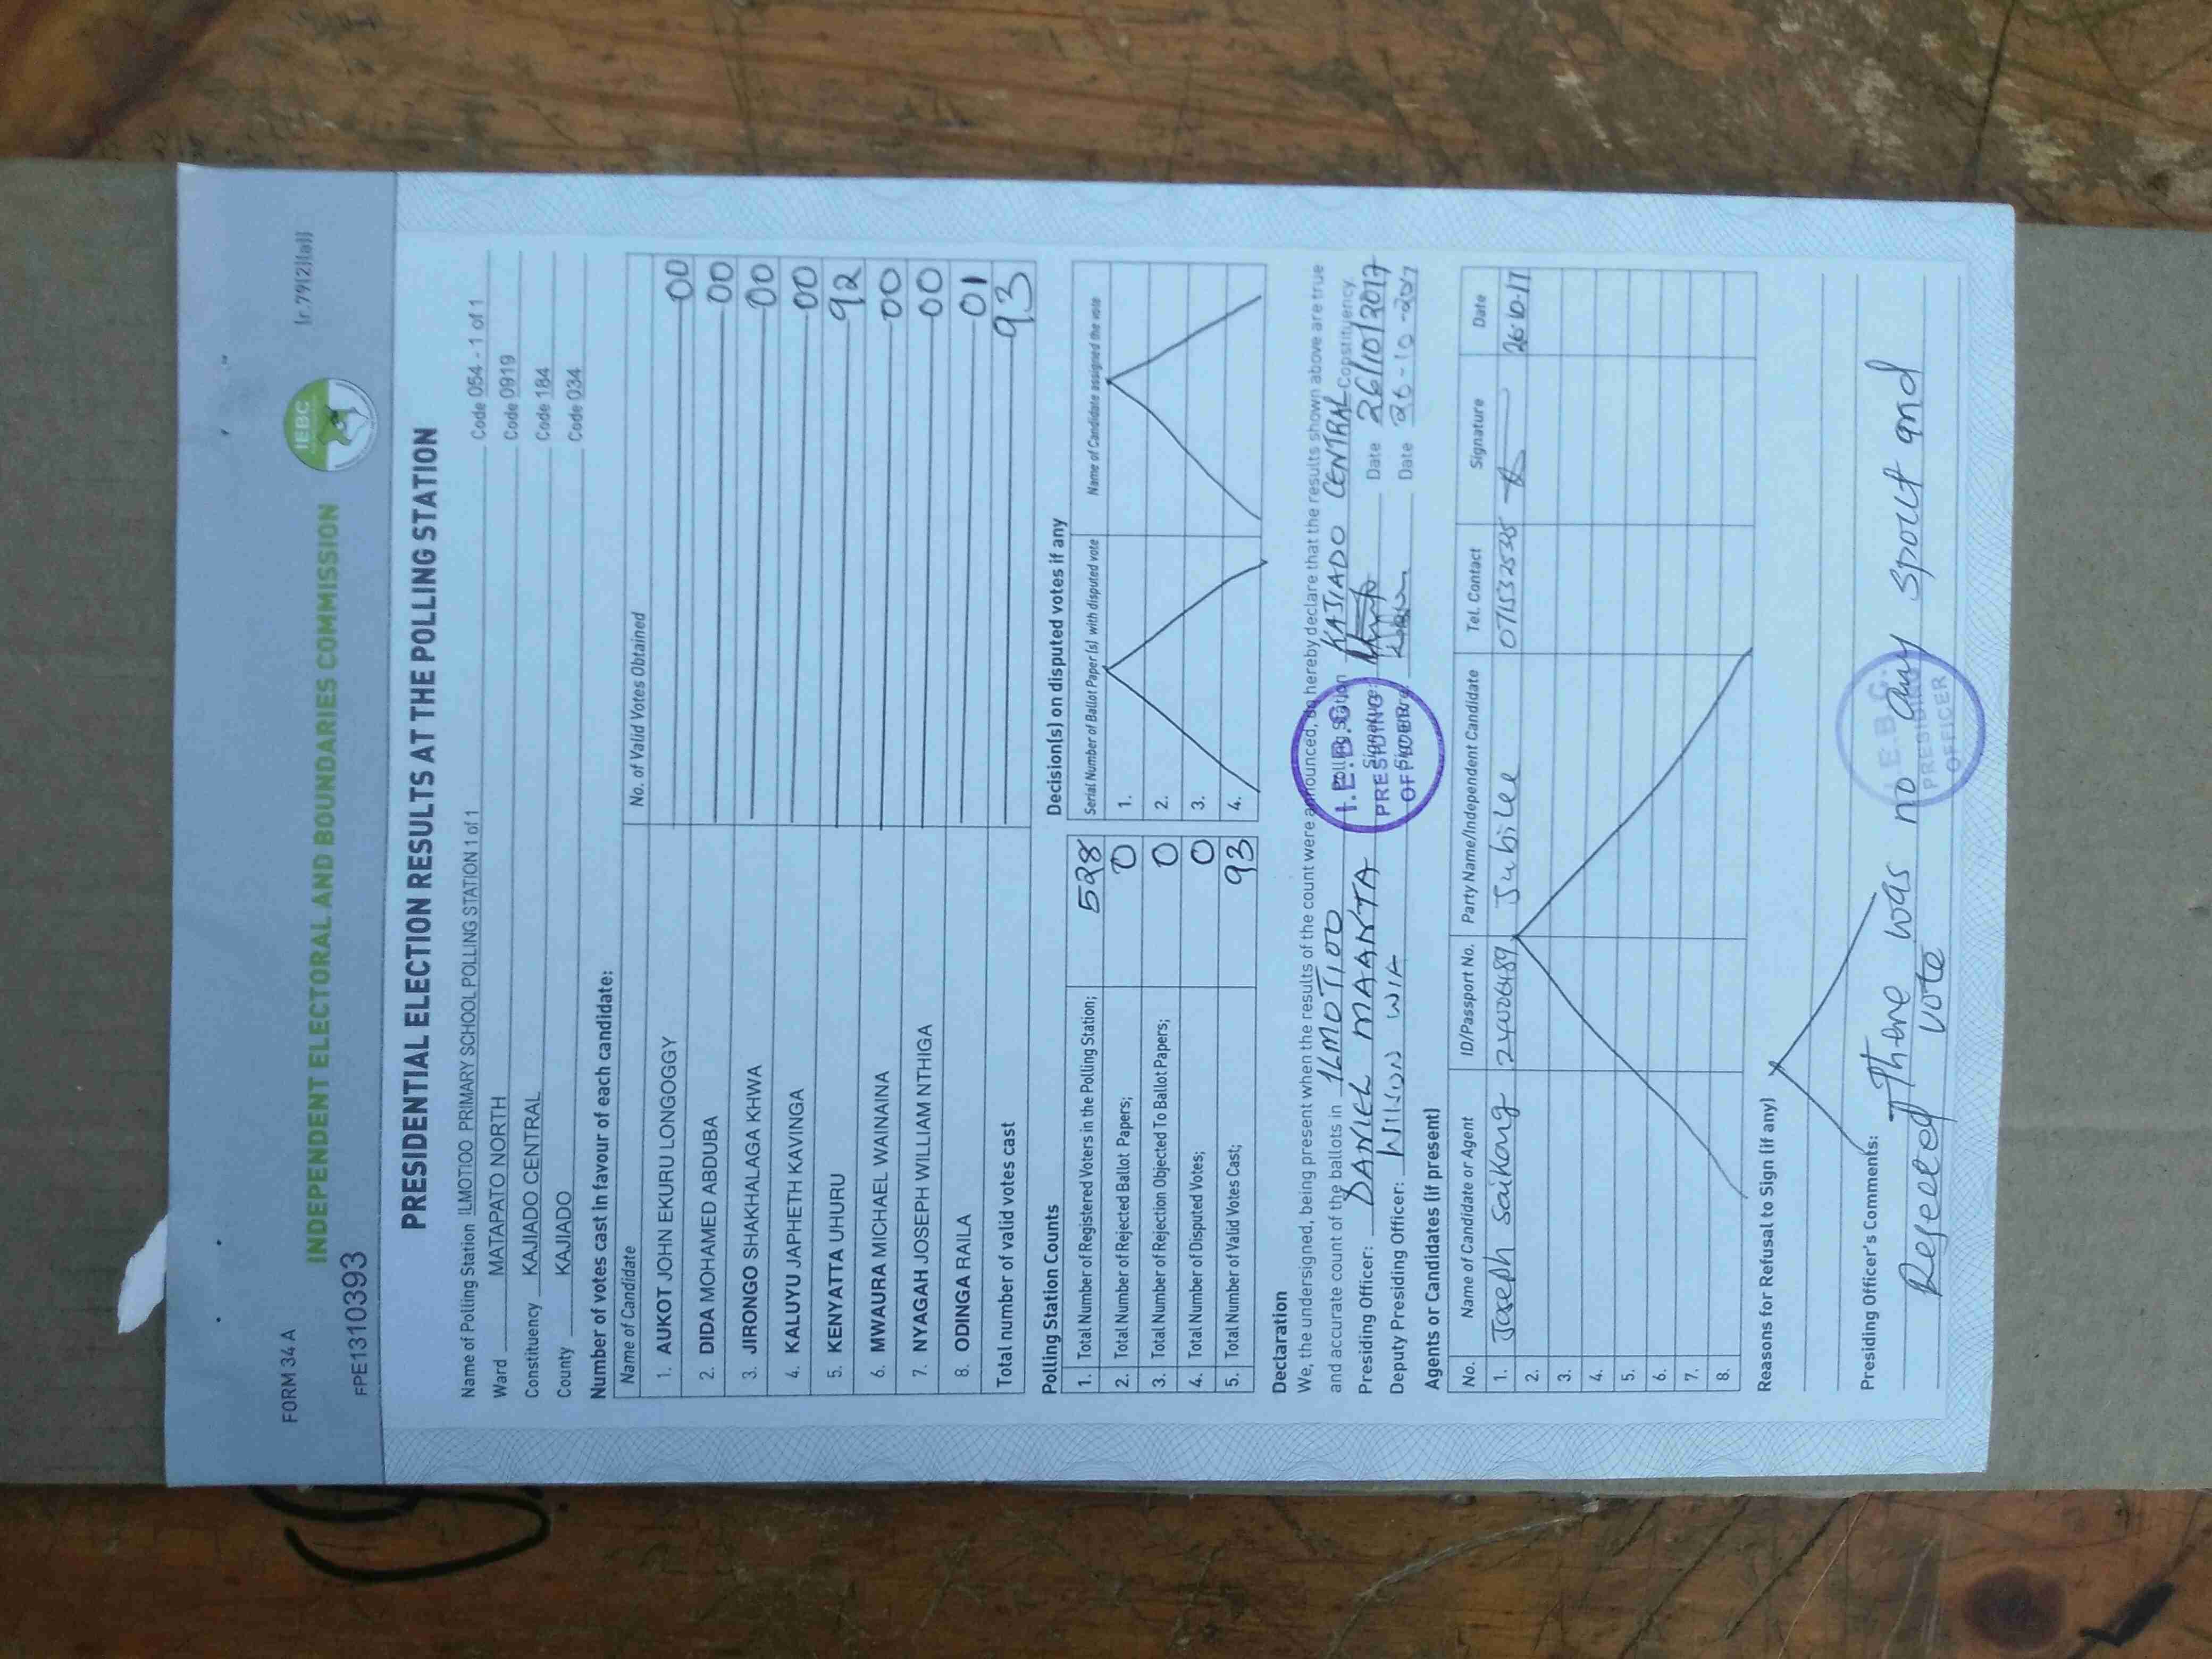 FORM 34 A
[r.79(2)(a)]
IEBC
INDEPENDENT ELECTORAL AND BOUNDARIES COMMISSION
FPE1310393
PRESIDENTIAL ELECTION RESULTS AT THE POLLING STATION
Name of Polling Station ILMOTIOO PRIMARY SCHOOL POLLING STATION 1 of 1 Code 054 - 1 of 1
Ward MATAPATO NORTH Code 0919
Constituency KAJIADO CENTRAL Code 184
County KAJIADO Code 034
Number of votes cast in favour of each candidate:
Name of Candidate No. of Valid Votes Obtained
1. AUKOT JOHN EKURU LONGOGGY 00
2. DIDA MOHAMED ABDUBA 00
3. JIRONGO SHAKHALAGA KHWA 00
4. KALUYU JAPHETH KAVINGA 00
5. KENYATTA UHURU 92
6. MWAURA MICHAEL WAINAINA 00
7. NYAGAH JOSEPH WILLIAM NTHIGA 00
8. ODINGA RAILA 01
Total number of valid votes cast 93
Polling Station Counts
1. Total Number of Registered Voters in the Polling Station; 528
2. Total Number of Rejected Ballot Papers; 0
3. Total Number of Rejection Objected To Ballot Papers; 0
4. Total Number of Disputed Votes; 0
5. Total Number of Valid Votes Cast; 93
Decision(s) on disputed votes if any
Serial Number of Ballot Paper(s) with disputed vote Name of Candidate assigned the vote
1.
2.
3.
4.
Declaration
We, the undersigned, being present when the results of the count were announced, do hereby declare that the results shown above are true
and accurate count of the ballots in ILMOTIOO Polling Station KAJIADO CENTRAL Constituency.
Presiding Officer: DANIEL MAANTA Signature: Date 26/10/2017
Deputy Presiding Officer: WILSON WIA Date 26-10-2017
I.E.B.C.
PRESIDING
OFFICER
Agents or Candidates (if present)
No. Name of Candidate or Agent ID/Passport No. Party Name/Independent Candidate Tel. Contact Signature Date
1. Joseph Saikong 24006489 Jubilee 0715332535 26.10.17
2.
3.
4.
5.
6.
7.
8.
Reasons for Refusal to Sign (if any)
Presiding Officer's Comments: There was no any spoilt and
Rejected vote
I.E.B.C.
PRESIDING
OFFICER